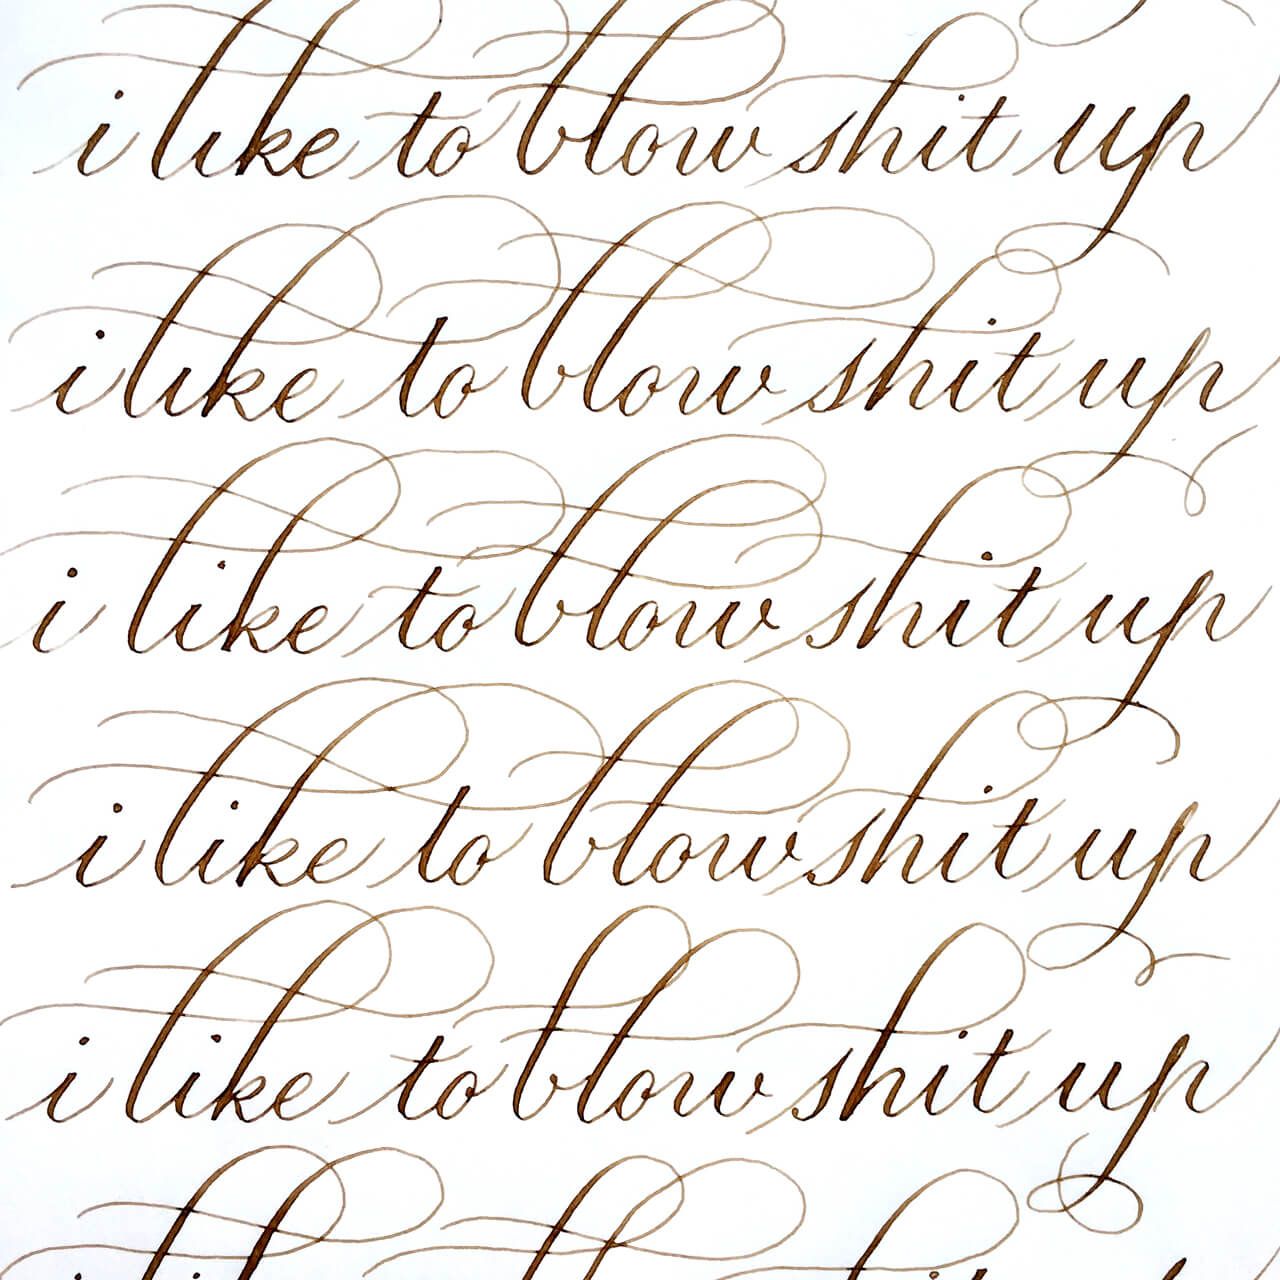 i like to blow shit up
i like to blow shit up
i like to blow shit up
i like to blow shit up
i like to blow shit up